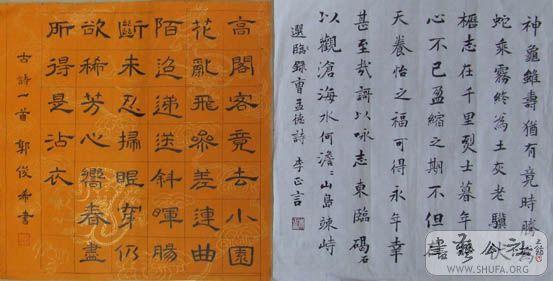 高閣客竟去小園
花亂飛參差連曲
陌迢遞送斜暉腸
斷未忍掃眼穿仍
欲稀芳心嚮春盡
所得是沾衣
古詩一首 郭俊希書
神龜雖壽猶有竟時騰
蛇乘霧終為土灰老驥
櫪志在千里烈士暮年
心不已盈縮之期不但
天養怡之福可得永年幸
甚至哉歌以咏志東臨碣石
以觀滄海水何澹々山島竦峙
選臨錄曹孟德詩 李正言
WWW.SHUFA.ORG